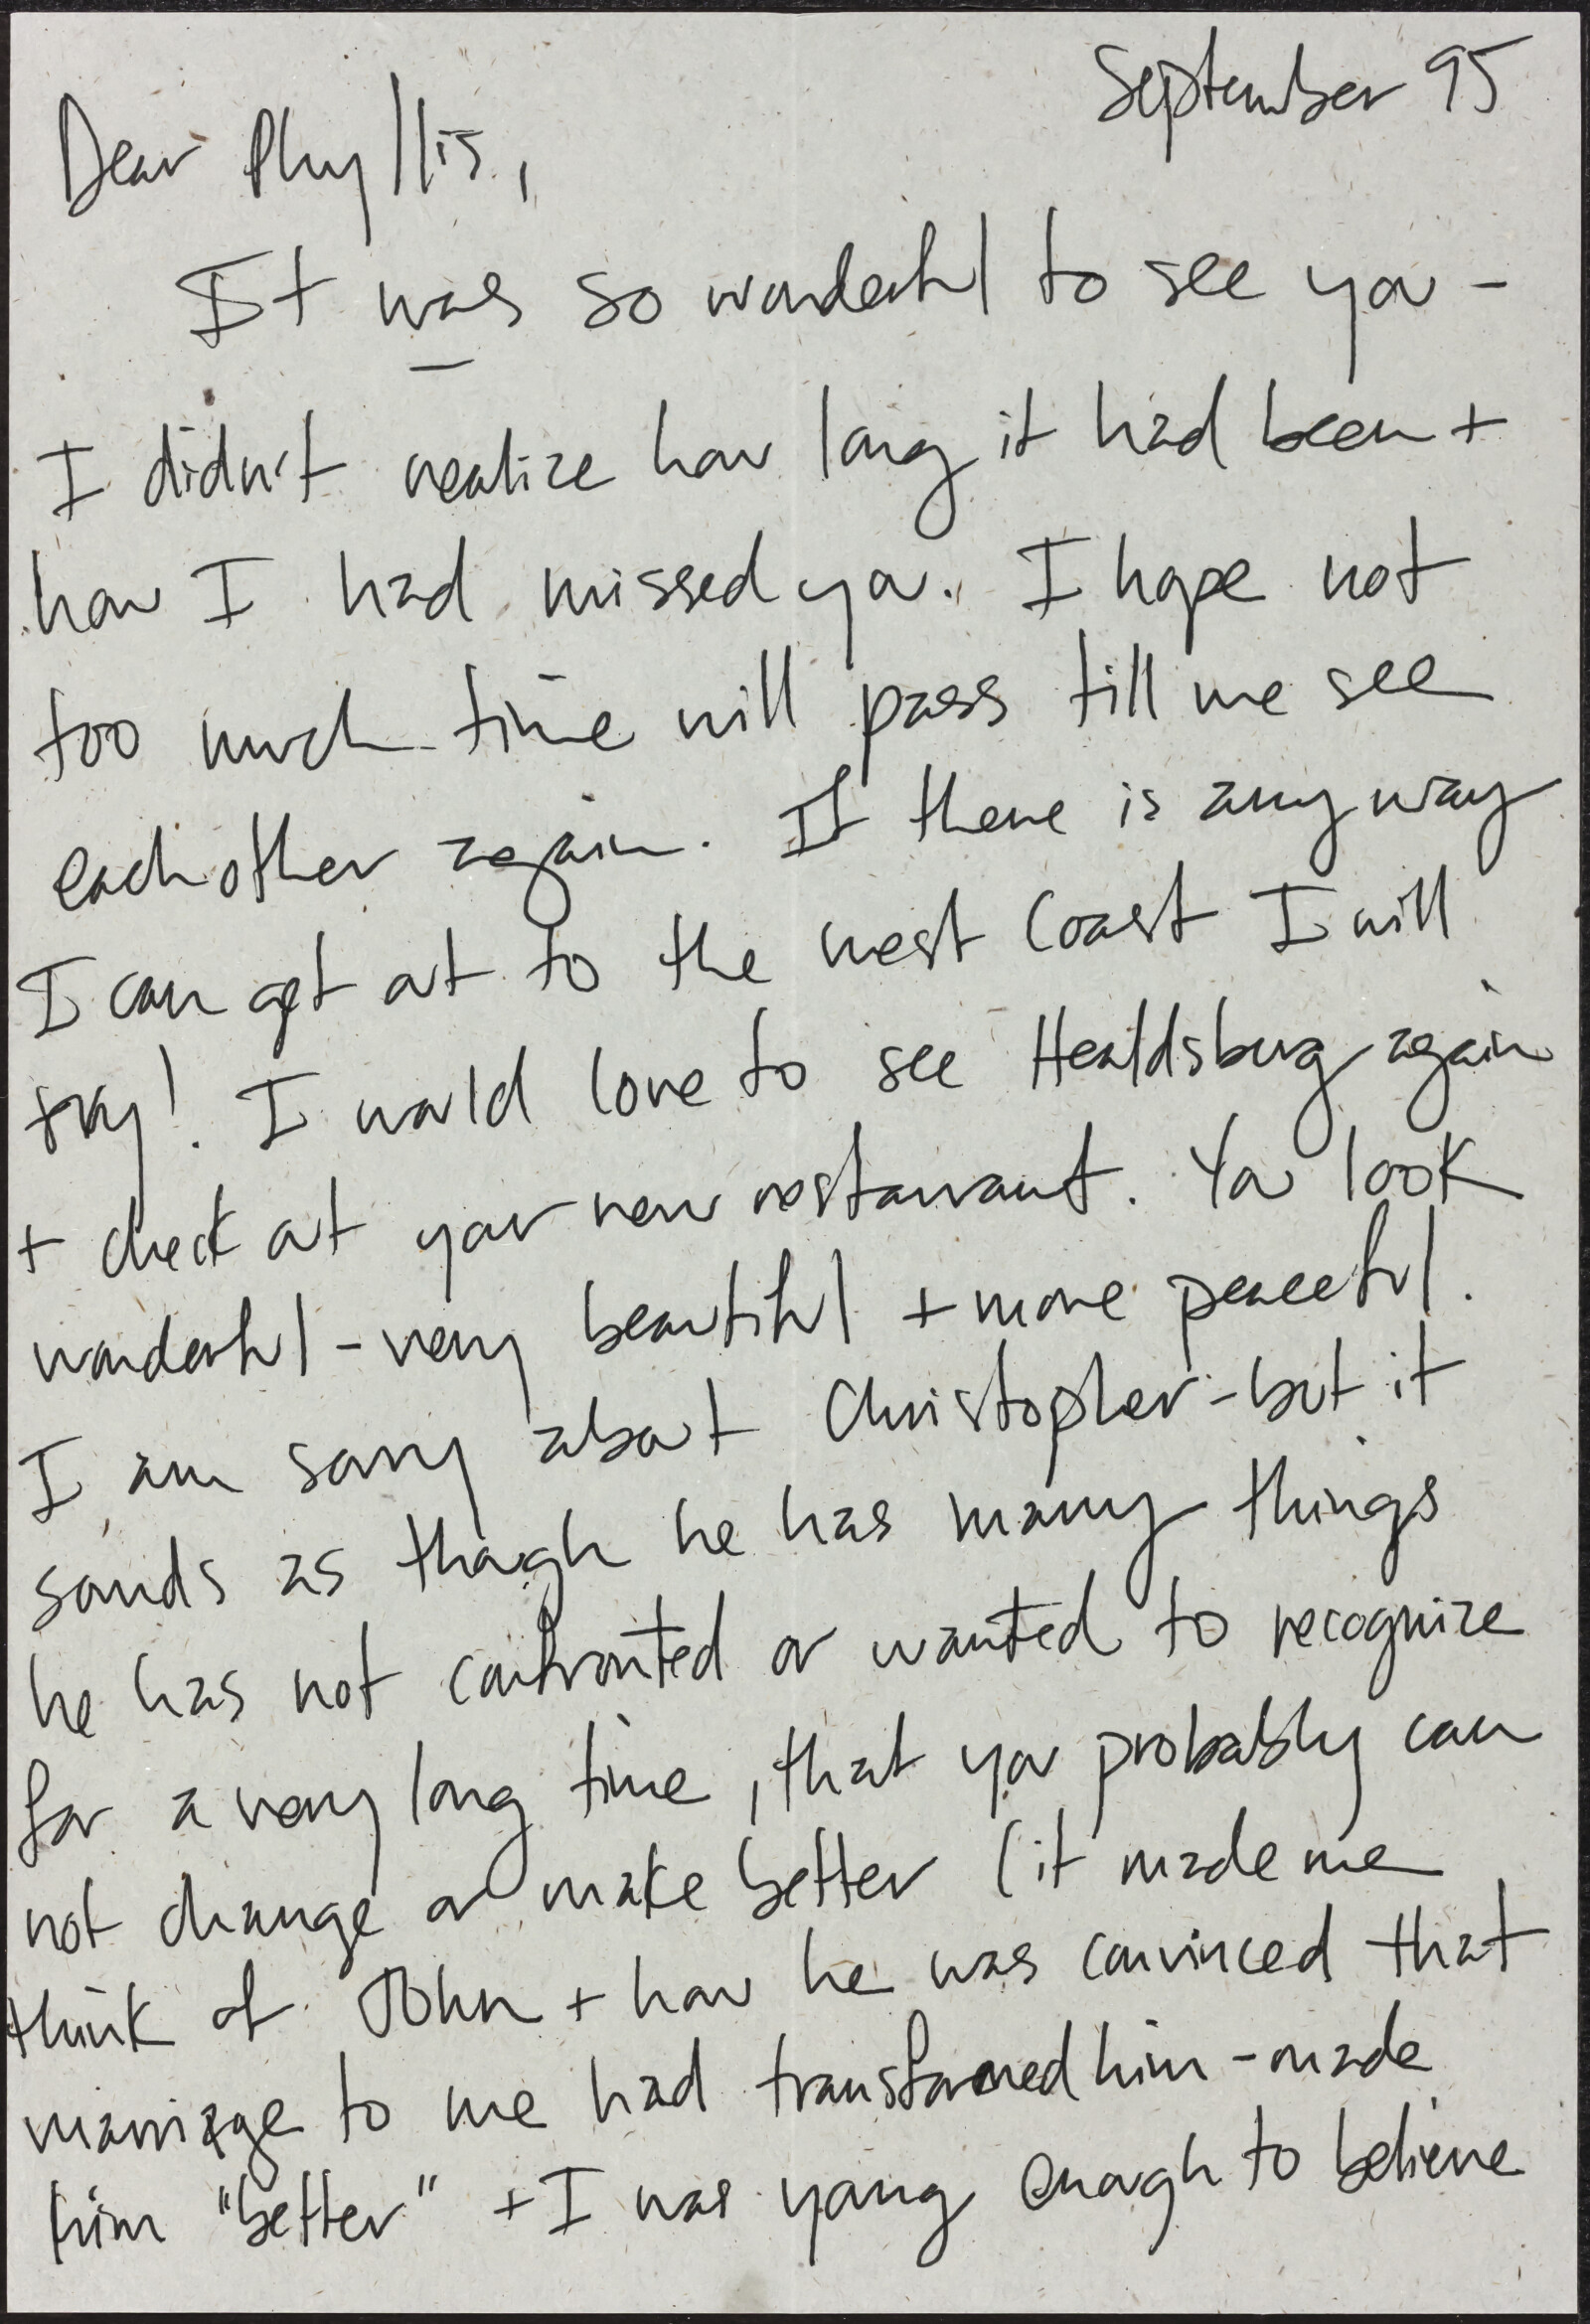 September 95
Dear Phyllis,
It was so wonderful to see you -
I didn't realize how long it had been +
how I had missed you. I hope not
too much time will pass till we see
each other again. If there is any way
I can get out to the west Coast I will
try! I would love to see Healdsburg again
+ check out your new restaurant. You look
wonderful - very beautiful + more peaceful.
I am sorry about Christopher - but it
sounds as though he has many things
he has not confronted or wanted to recognize
for a very long time, that you probably can
not change or make better (it made me
think of John + how he was convinced that
marriage to me had transformed him - made
him "better" + I was young enough to believe